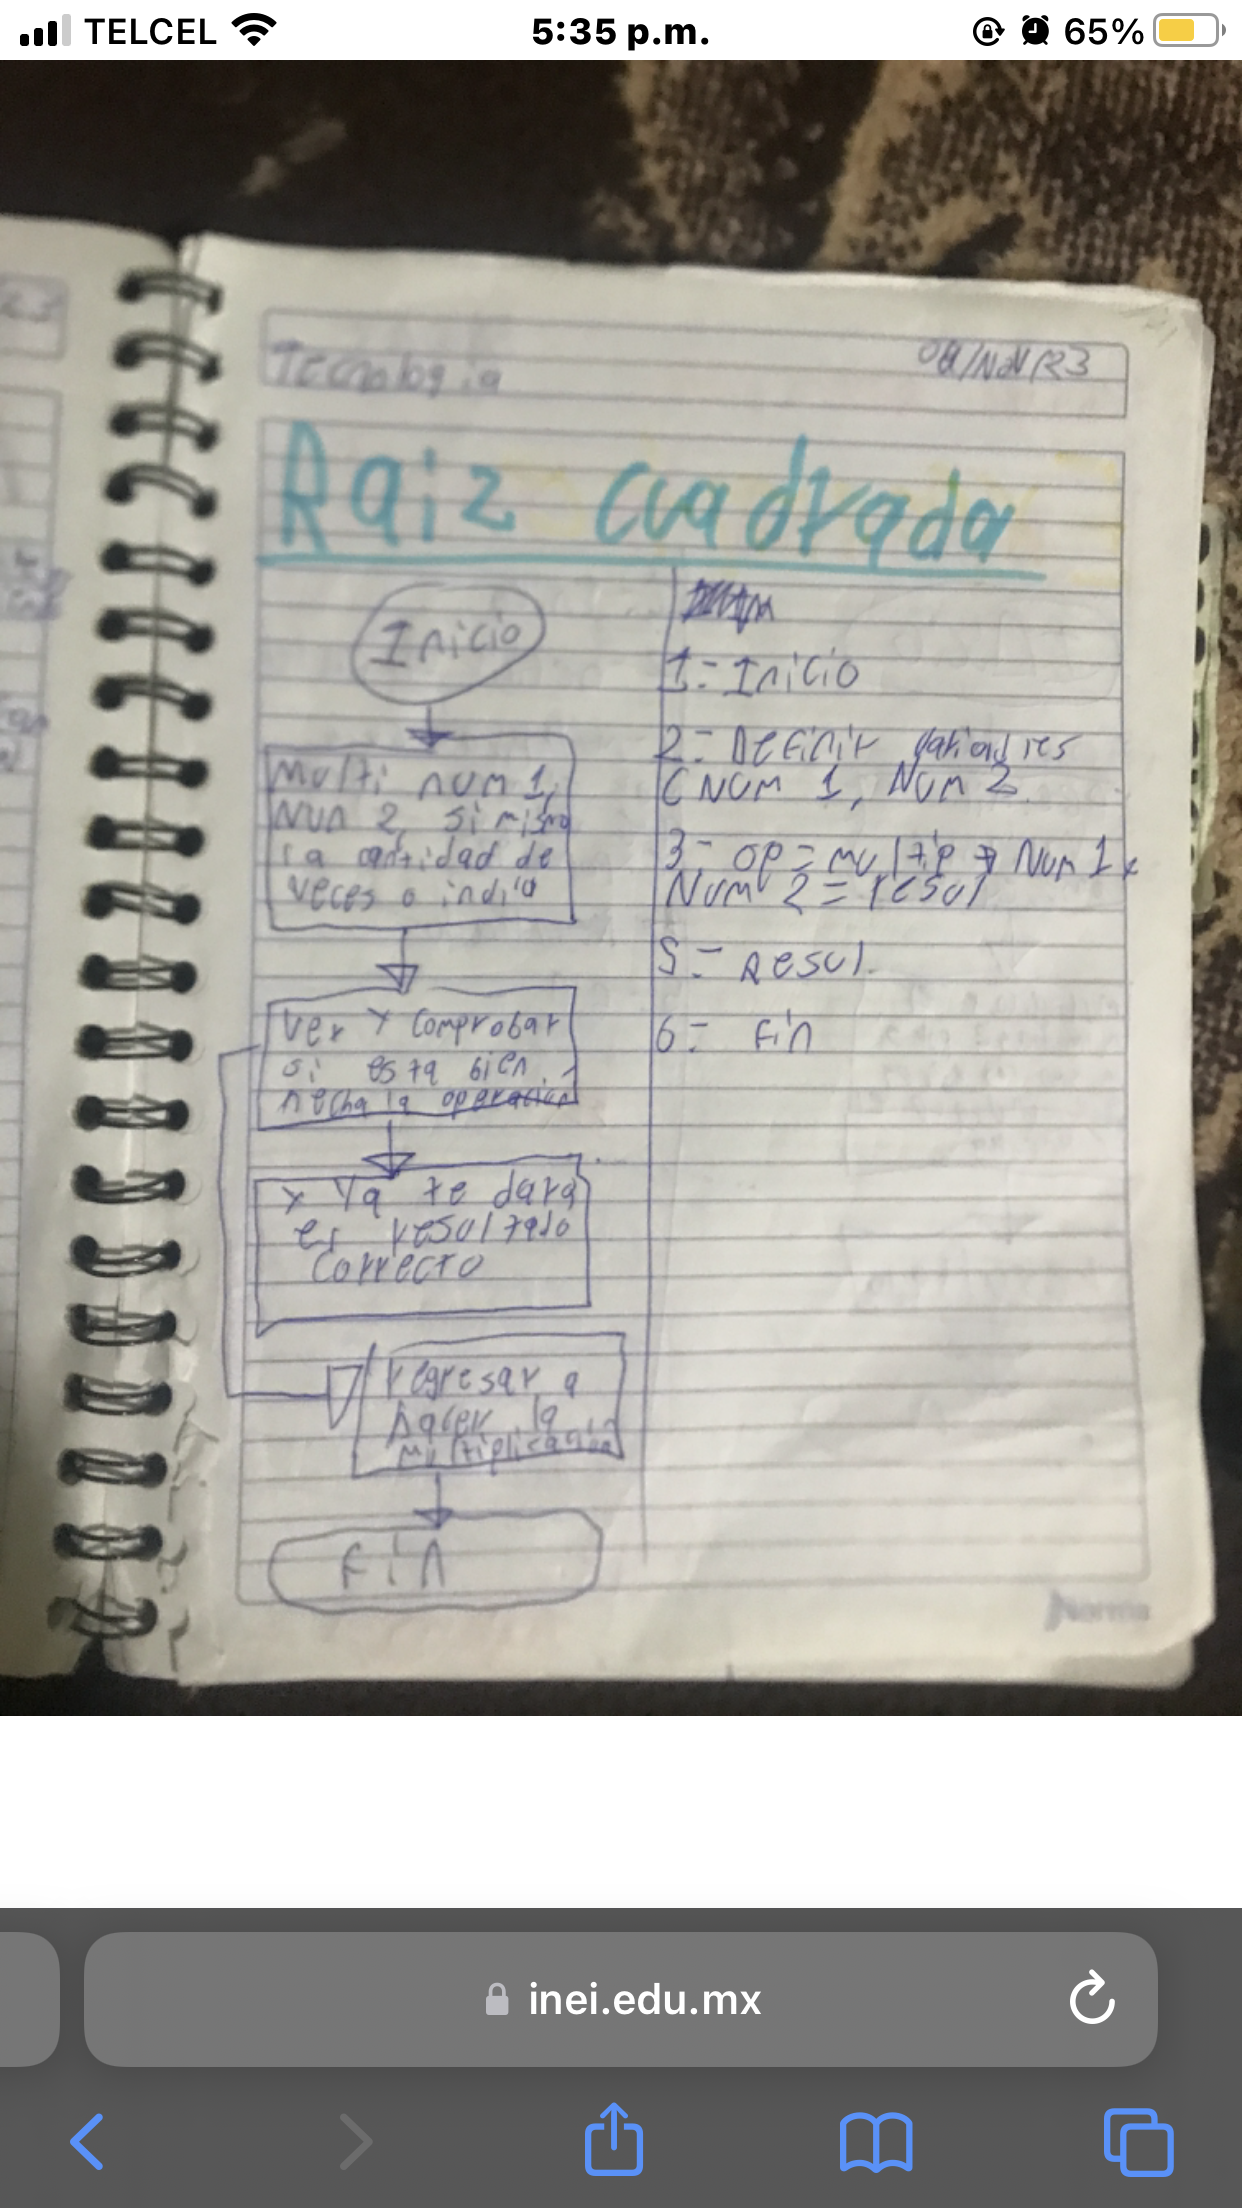 TELCEL
5:35 p.m.
65%
Tecnologia
Raiz cuadrada
Inicio
Multi num 1,
Nun 2, si mismo
la cantidad de
veces o
Ver y comprobar
si esta bien
hecha la operación
y ya te dara
el resultado
correcto
regresar a
hacer la
multiplicación
Fin
1- Inicio
2- Definir
C NUM 1, NUM 2
3- op = multip → Num 1 x
Num 2 = resul
5- Resul.
6- Fin
Norma
inei.edu.mx